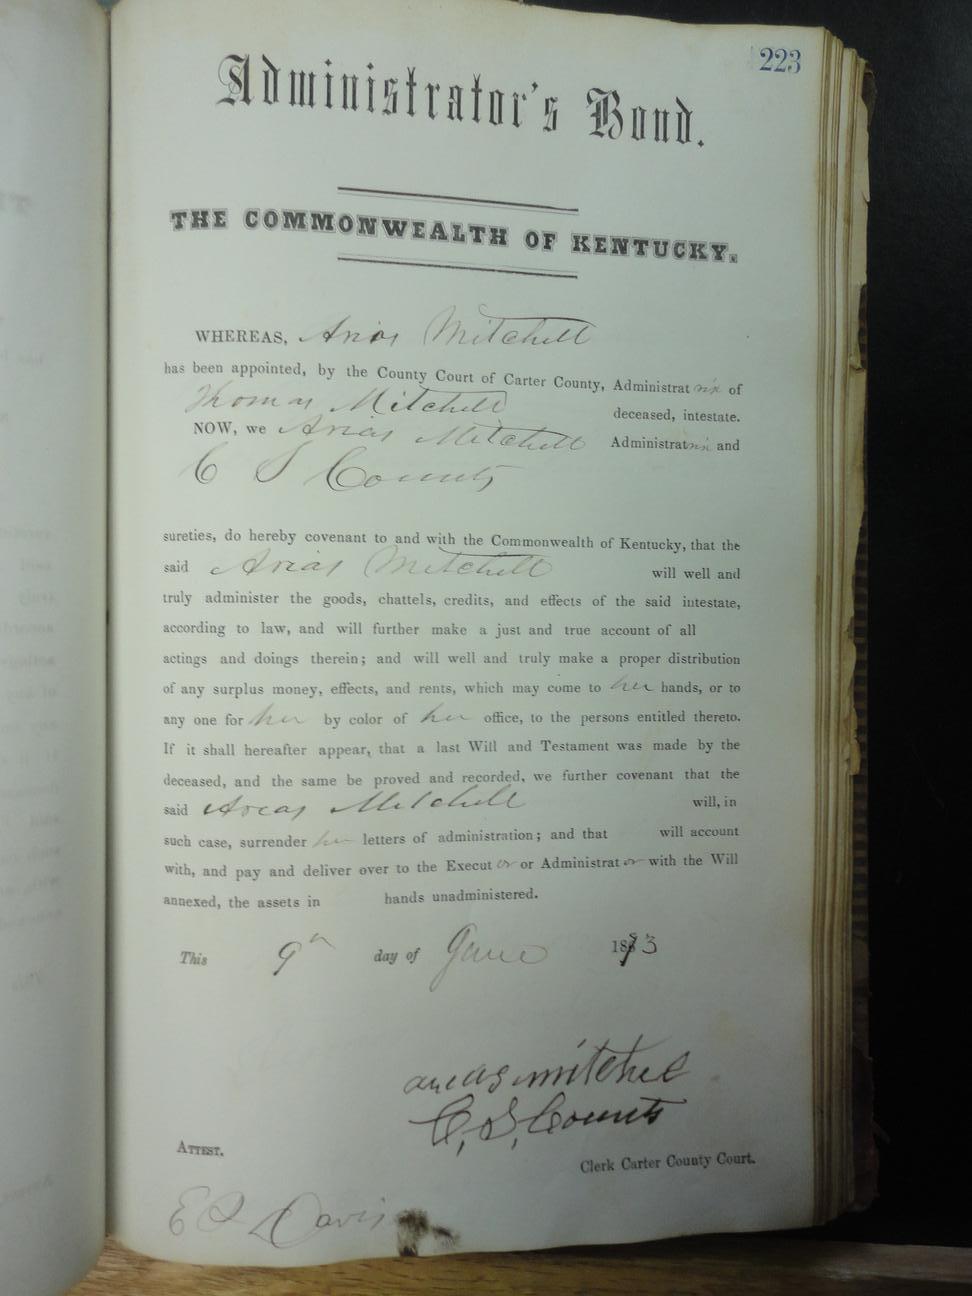 223
Administrator's Bond.
THE COMMONWEALTH OF KENTUCKY.
WHEREAS, Arias Mitchell
has been appointed, by the County Court of Carter County, Administratrix of
Thomas Mitchell deceased, intestate.
NOW, we Arias Mitchell Administratrix and
C S Counts
sureties, do hereby covenant to and with the Commonwealth of Kentucky, that the
said Arias Mitchell will well and
truly administer the goods, chattels, credits, and effects of the said intestate,
according to law, and will further make a just and true account of all
actings and doings therein; and will well and truly make a proper distribution
of any surplus money, effects, and rents, which may come to her hands, or to
any one for her by color of her office, to the persons entitled thereto.
If it shall hereafter appear, that a last Will and Testament was made by the
deceased, and the same be proved and recorded, we further covenant that the
said Arias Mitchell will, in
such case, surrender her letters of administration; and that will account
with, and pay and deliver over to the Executor or Administrator with the Will
annexed, the assets in hands unadministered.
This 9th day of June 1873
mitchel
C, S, Counts
ATTEST.
Clerk Carter County Court.
Davis